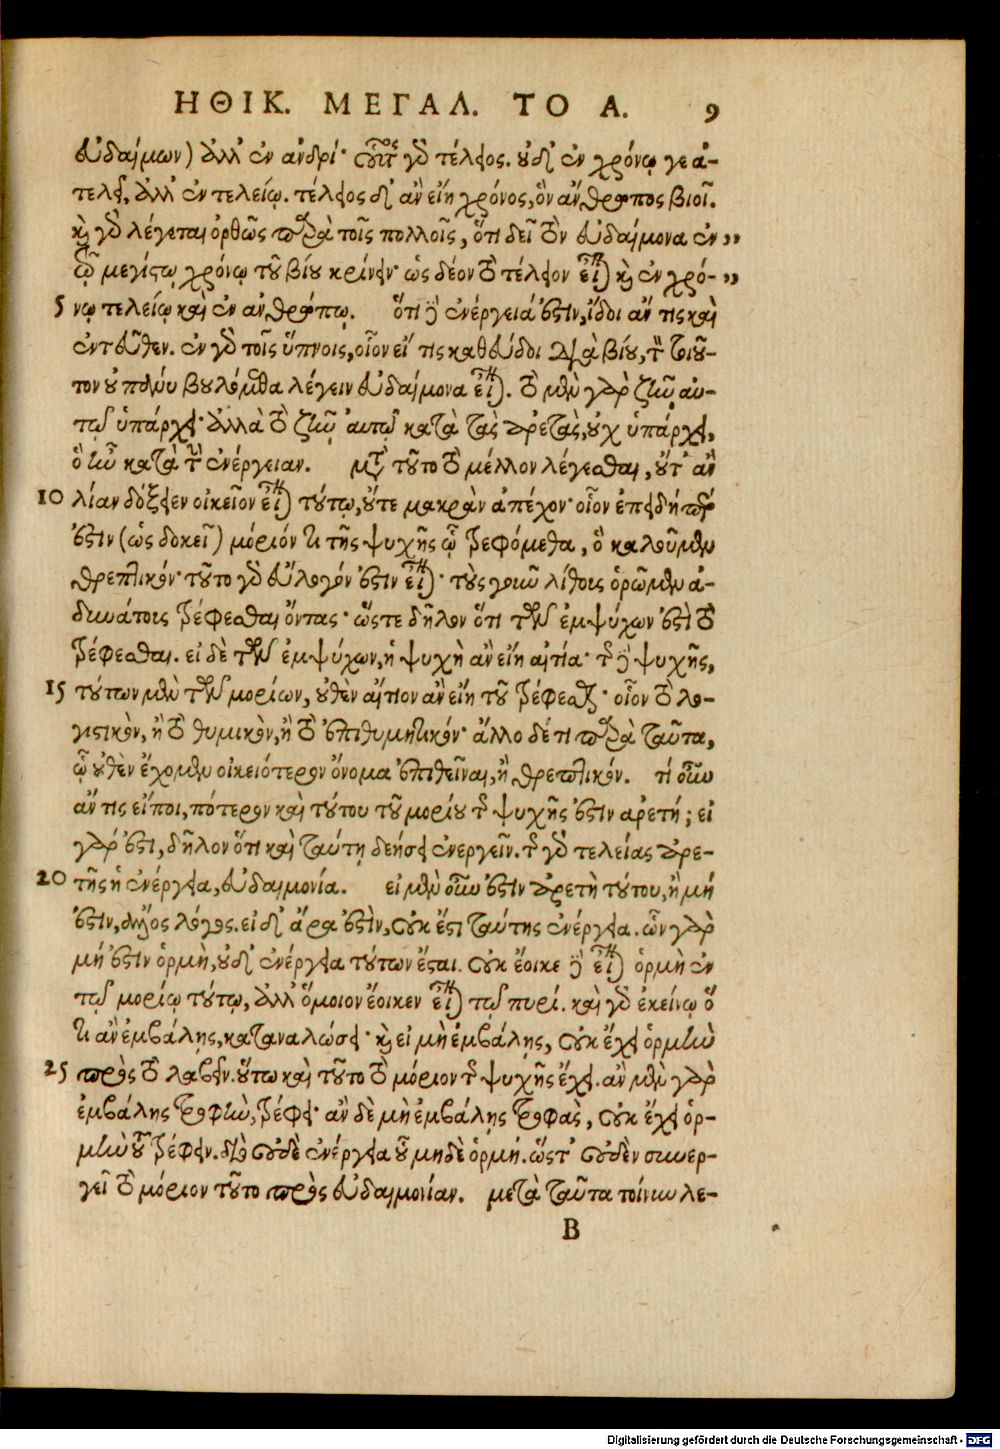 ΗΘΙΚ. ΜΕΓΑΛ. ΤΟ Α. 9
εὐδαίμων) ἀλλ' ἐν ἀνδρί· οὗτος γὰρ τέλειος. οὐδ' ἐν χρόνῳ γε ἀ-
τελεῖ, ἀλλ' ἐν τελείῳ. τέλειος δ' ἂν εἴη χρόνος, ὃν ἄνθρωπος βιοῖ.
καὶ γὰρ λέγεται ὀρθῶς παρὰ τοῖς πολλοῖς, ὅτι δεῖ τὸν εὐδαίμονα ἐν ,,
τῷ μεγίστῳ χρόνῳ τοῦ βίου κρίνειν· ὡς δέον τὸ τέλειον εἶναι καὶ ἐν χρό- ,,
5 νῳ τελείῳ καὶ ἐν ἀνθρώπῳ. ὅτι δὲ ἐνέργειά ἐστιν, ἴδοι ἄν τις καὶ
ἐντεῦθεν. ἐν γὰρ τοῖς ὕπνοις, οἷον εἴ τις καθεύδοι διὰ βίου, τὸν τοιοῦ-
τον οὐ πάνυ βουλόμεθα λέγειν εὐδαίμονα εἶναι. τὸ μὲν γὰρ ζῆν αὐ-
τῷ ὑπάρχει· ἀλλὰ τὸ ζῆν αὐτῷ κατὰ τὰς ἀρετὰς, οὐχ ὑπάρχει,
ὃ ἦν κατὰ τὴν ἐνέργειαν. μετὰ τοῦτο τὸ μέλλον λέγεσθαι, οὔτ' ἂν
10 λίαν δόξειεν οἰκεῖον εἶναι τούτῳ, οὔτε μακρὰν ἀπέχον· οἷον ἐπειδήπερ
ἐστὶν (ὡς δοκεῖ) μόριόν τι τῆς ψυχῆς ᾧ τρεφόμεθα, ὃ καλοῦμεν
θρεπτικόν· τοῦτο γὰρ εὔλογόν ἐστιν εἶναι· τοὺς γοῦν λίθους ὁρῶμεν ἀ-
δυνάτους τρέφεσθαι ὄντας· ὥστε δῆλον ὅτι τῶν ἐμψύχων ἐστὶ τὸ
τρέφεσθαι. εἰ δὲ τῶν ἐμψύχων, ἡ ψυχὴ ἂν εἴη αἰτία· τῆς δὲ ψυχῆς,
15 τούτων μὲν τῶν μορίων, οὐθὲν αἴτιον ἂν εἴη τοῦ τρέφεσθαι· οἷον τὸ λο-
γιστικὸν, ἢ τὸ θυμικὸν, ἢ τὸ ἐπιθυμητικόν· ἄλλο δέ τι παρὰ ταῦτα,
ᾧ οὐθὲν ἔχομεν οἰκειότερον ὄνομα ἐπιθεῖναι, ἢ θρεπτικόν. τί οὖν
ἄν τις εἴποι, πότερον καὶ τούτου τοῦ μορίου τῆς ψυχῆς ἐστιν ἀρετή; εἰ
γάρ ἐστι, δῆλον ὅτι καὶ ταύτῃ δεήσει ἐνεργεῖν. τῆς γὰρ τελείας ἀρε-
20 τῆς ἡ ἐνέργεια, εὐδαιμονία. εἰ μὲν οὖν ἐστιν ἀρετὴ τούτου, ἢ μή
ἐστιν, ἄλλος λόγος. εἰ δ' ἄρα ἐστὶν, οὐκ ἔστι ταύτης ἐνέργεια. ὧν γὰρ
μή ἐστιν ὁρμὴ, οὐδ' ἐνέργεια τούτων ἔσται. οὐκ ἔοικε δὲ εἶναι ὁρμὴ ἐν
τῷ μορίῳ τούτῳ, ἀλλ' ὅμοιον ἔοικεν εἶναι τῷ πυρί. καὶ γὰρ ἐκείνῳ ὅ
τι ἂν ἐμβάλῃς, καταναλώσει· καὶ εἰ μὴ ἐμβάλῃς, οὐκ ἔχει ὁρμὴν
25 πρὸς τὸ λαβεῖν. οὕτω καὶ τοῦτο τὸ μόριον τῆς ψυχῆς ἔχει. ἂν μὲν γὰρ
ἐμβάλῃς τροφὴν, τρέφει· ἂν δὲ μὴ ἐμβάλῃς τροφὰς, οὐκ ἔχει ὁρ-
μὴν τοῦ τρέφειν. διὸ οὐδὲ ἐνέργεια οὗ μηδὲ ὁρμή. ὥστ' οὐδὲν συνερ-
γεῖ τὸ μόριον τοῦτο πρὸς εὐδαιμονίαν. μετὰ ταῦτα τοίνυν λε-
B
Digitalisierung gefördert durch die Deutsche Forschungsgemeinschaft - DFG